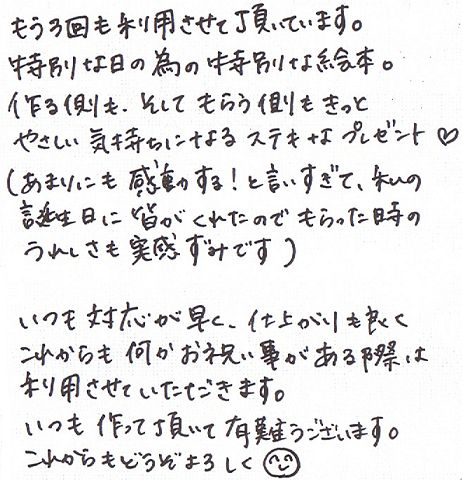 もう3回も利用させて頂いています。
特別な日の為の特別な絵本。
作る側も、そしてもらう側もきっと
やさしい気持ちになるステキなプレゼント♡
(あまりにも感動する!と言いすぎて、私の
誕生日に皆がくれたのでもらった時の
うれしさも実感ずみです)
いつも対応が早く、仕上がりも良く
これからも何かお祝い事がある際は
利用させていただきます。
いつも作って頂いて有難うございます。
これからもどうぞよろしく